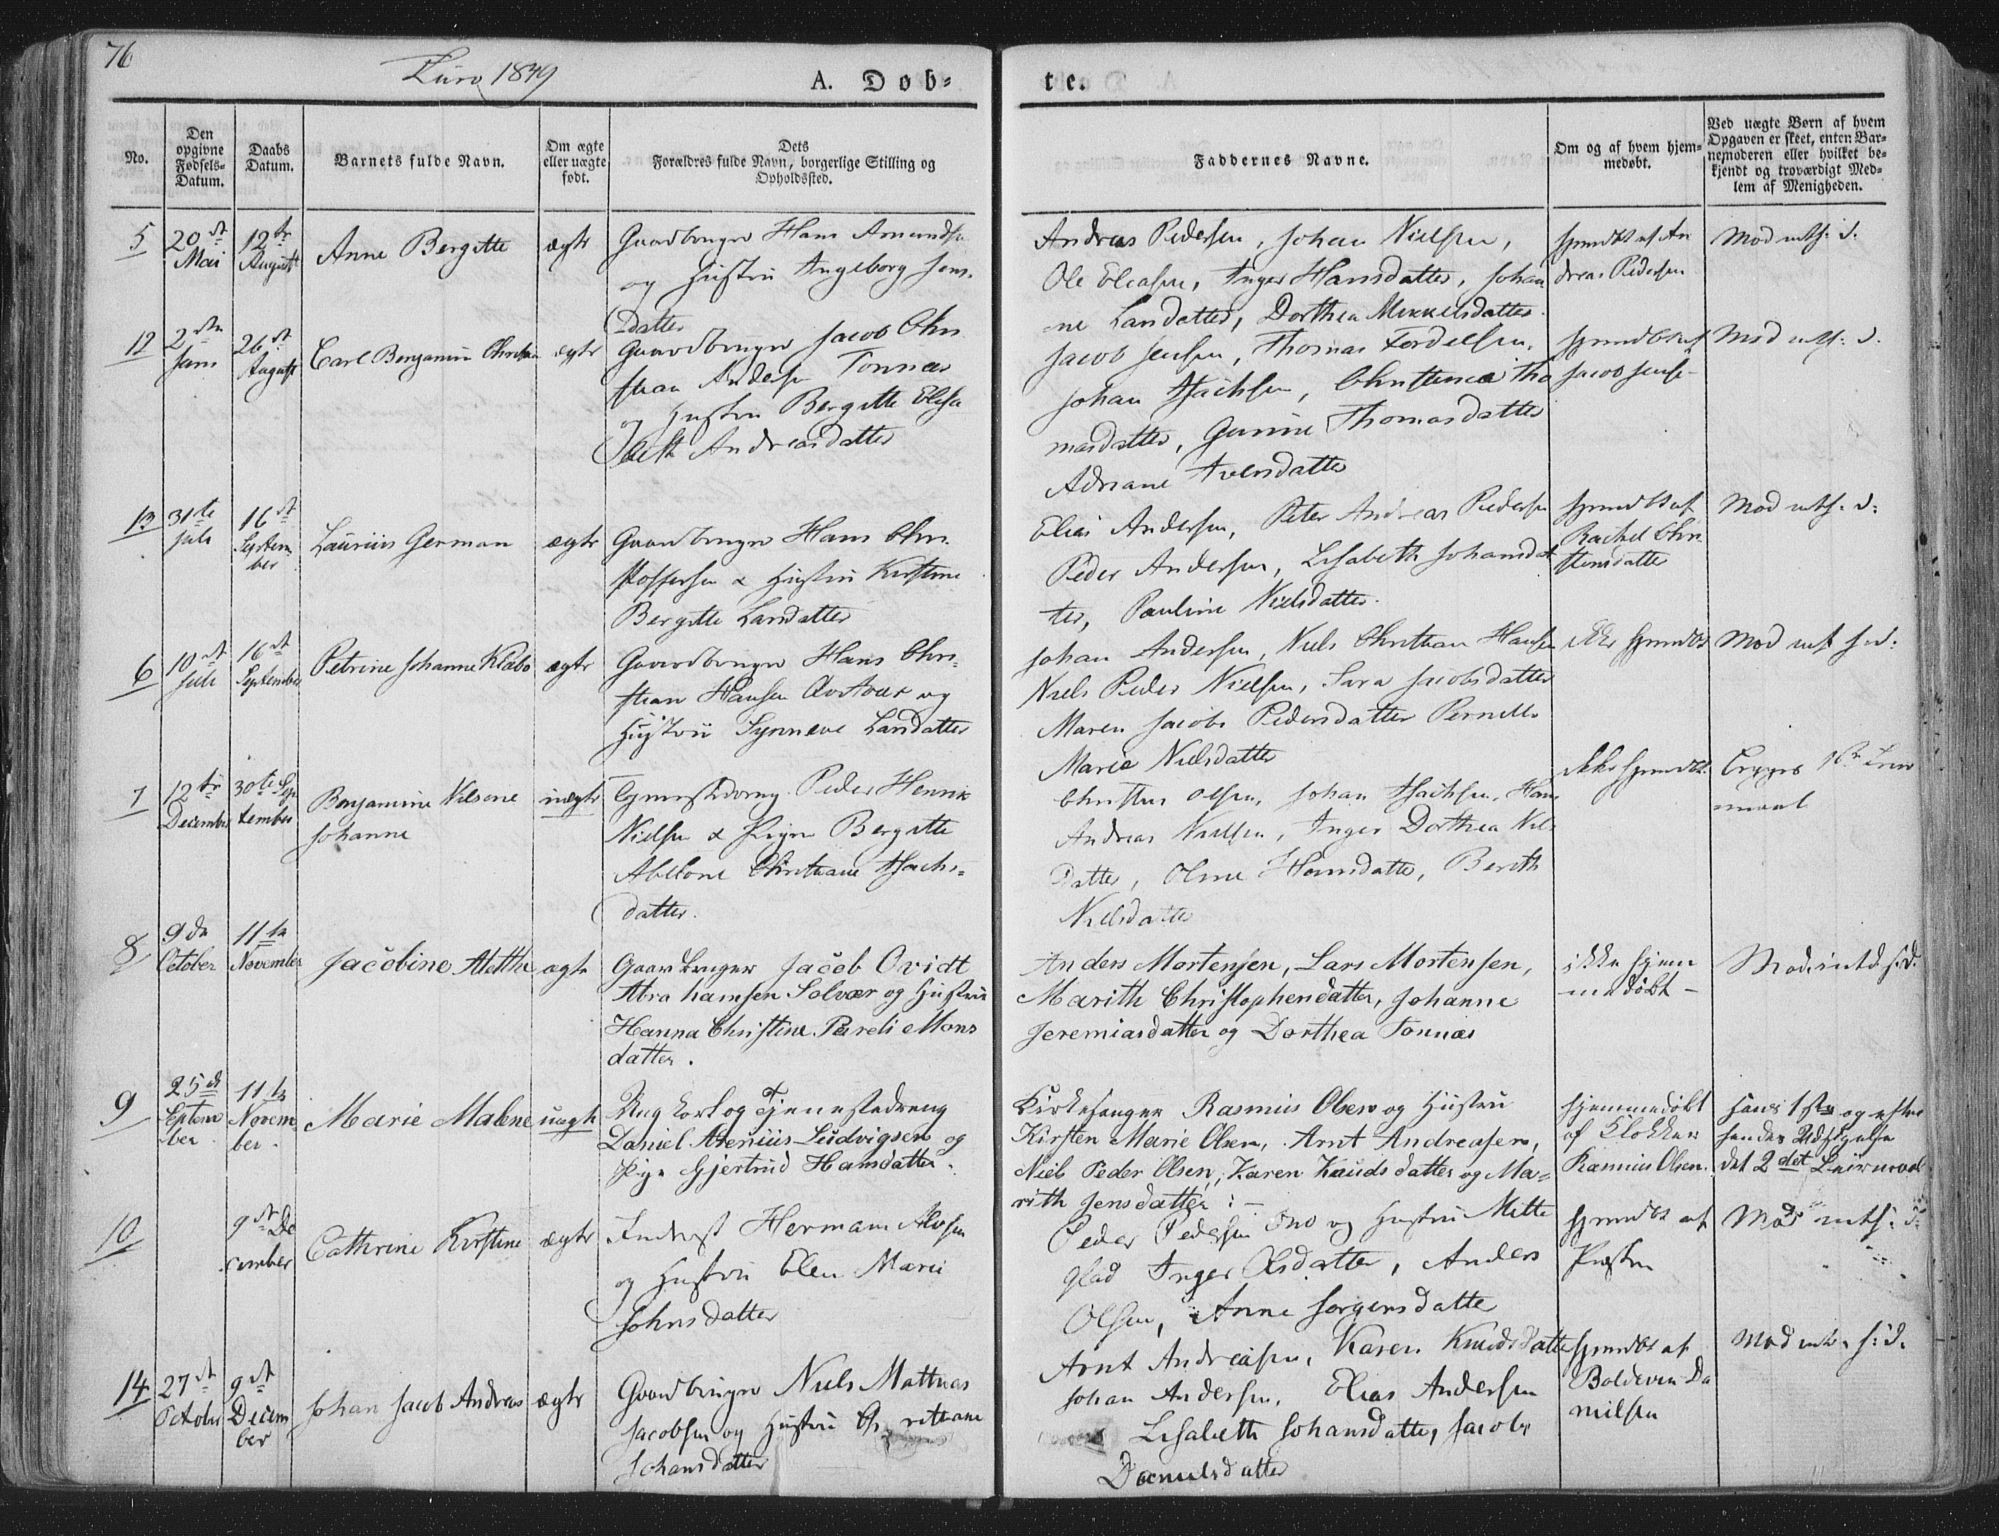 76
Lurø 1849
A. Døb-
te.
No.
Den opgivne Fødsels-Datum.
Daabs Datum.
Barnets fulde Navn.
Om ægte eller uægte født.
Dets Forældres fulde Navn, borgerlige Stilling og Opholdssted.
Faddernes Navne.
Om og af hvem hjem-medøbt.
Ved uægte Børn af hvem Opgaven er skeet, enten Bar-nemoderen eller hvilket be-kjendt og troværdigt Med-lem af Menigheden.
5
20 Mai
12te August
Anne Bergitte
ægte
Gaardbruger Hans Amunds
og Hustru Ingeborg Jons
Datter
Andreas Pedersen, Johan Nielsen,
Ole Eliasen, Inger Hansdatter, Johan
ne Larsdatter, Dorthea Mikkelsdatter
hjemdbt af An
dreas Pedersen
12
2den Juni
26 August
Carl Benjamin Christian
ægte
Gaardbruger Jacob Chri
stian Andersen Tonnes
og Hustru Bergitte Elisa
beth Andreasdatter
Jacob Jensen, Thomas
Johan Isachsen, Christence Tho
masdatter, Gurine Thomasdatter
Adriane Iversdatter
hjemdbt af
Jacob Jense
13
31te Juli
16 Septem
ber
Laurius German
ægte
Gaardbruger Hans Chri
stoffersen & Hustru Kirstine
Bergitte Larsdatter
Elias Andersen, Peter Andreas Pedersen
Peder Andersen, Lisabeth Johansdat
ter, Pauline Nielsdatter.
hjemdbt af
Rachel Chri
stensdatter
6
10 Juli
16 September
Petrine Johanne Klabo
ægte
Gaardbruger Hans Chri-
stian Hansen og
Hustru Synneve Larsdatter
Johan Andersen, Niels Christian Hansen
Niels Peder Nielsen, Sara Jacobsdatter
Maren Jacobs Pedersdatter Pernille
Marie Nielsdatter
ikke hjemdbt
7
12te December
30te Sep
tember
Benjamine Nilsene
Johanne
uægte
Tjenestdreng Peder Henrik
Nielsen & Pigen Bergitte
Abelone Christiane Isachs-
datter.
Christen Olsen, Johan Isachsen, Hans
Andreas Nielsen, Inger Dorthea Niels
Datter, Oline Hansdatter, Bereth
Nielsdatter
ikke hjemdbt
Begges 1ste Leier
maal
8
9de October
11te November
Jacobine Aletthe
ægte
Gaardbruger Jacob Ovidt
Abrahamsen Solvær og Hustru
Hanna Christine Pareli Mons
datter.
Anders Mortensen, Lars Mortensen,
Marith Christophersdatter, Johanne
Jeremiasdatter og Dorthea Tonnæs
ikke hjem
medøbt -
9
25de Septem
ber
11te Novem
ber.
Marie Malene
uægte
Ung karl og Tjenestedreng
Daniel Arenius Ludvigsen og
Pige Gjertrud Hansdatter.
Kirkesanger Rasmus Olsen og Hustru
Kirsten Marie Olsen, Arnt Andreasen,
Niels Peder Olsen, Karen Knudsdatter og Ma-
rith Jensdatter :-
hjemmedøbt
af Klokker
Rasmus Olsen.
hans 1ste og efter
hendes Udsigelse
det 2det Leiermaal
10
9 De
cember
Catherine Kirstine
ægte
Inderst Herman
og Hustru Elen Marie
Johnsdatter
Peder Pedersen og Hustru Mette
Glad Inger Olsdatter, Anders
Olsen, Anne Jørgensdatter
hjemdbt af
Præsten
14
27 October
9 Decem
ber
Johan Jacob Andreas
ægte
Gaardbruger Niels Mattias
Jacobsen og Hustru
Johansdatter
Arnt Andreasen, Karen Knudsdatter
Johan Andersen, Elias Andersen
Lisabeth Johansdatter, Jacob
Danielsdatter
hjemdbt af
Boldeven Da
nielsen